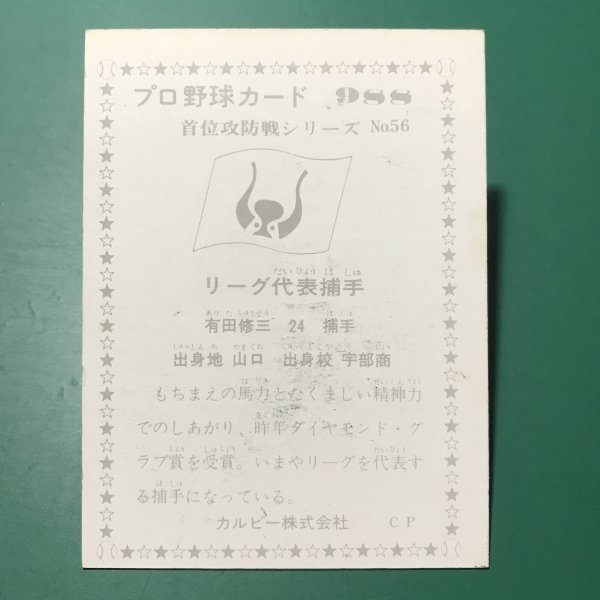 プロ野球カード 988
首位攻防戦シリーズ No.56
リーグ代表捕手
有田修三 24 捕手
出身地 山口 出身校 宇部商
もちまえの馬力とたくましい精神力
でのしあがり、昨年ダイヤモンド・グ
ラブ賞を受賞。いまやリーグを代表す
る捕手になっている。
カルビー株式会社 CP